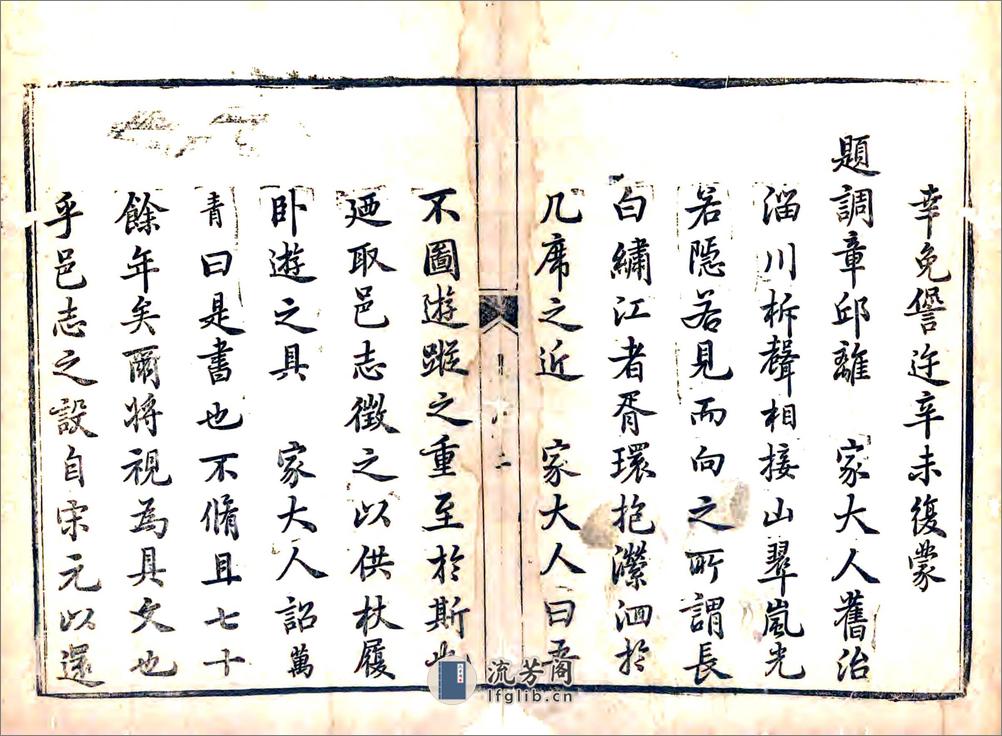 幸免愆迄辛未復蒙
題調章邱離　家大人舊治
淄川柝聲相接山翠嵐光
若隱若見而向之所謂長
白繡江者胥環抱瀠洄於
几席之近　家大人曰吾
不圖遊蹤之重至於斯也
廼取邑志徵之以供杖履
卧遊之具　家大人詔萬
青曰是書也不脩且七十
餘年矣爾將視為具文也
乎邑志之設自宋元以還
二
流芳阁
lfglib.cn